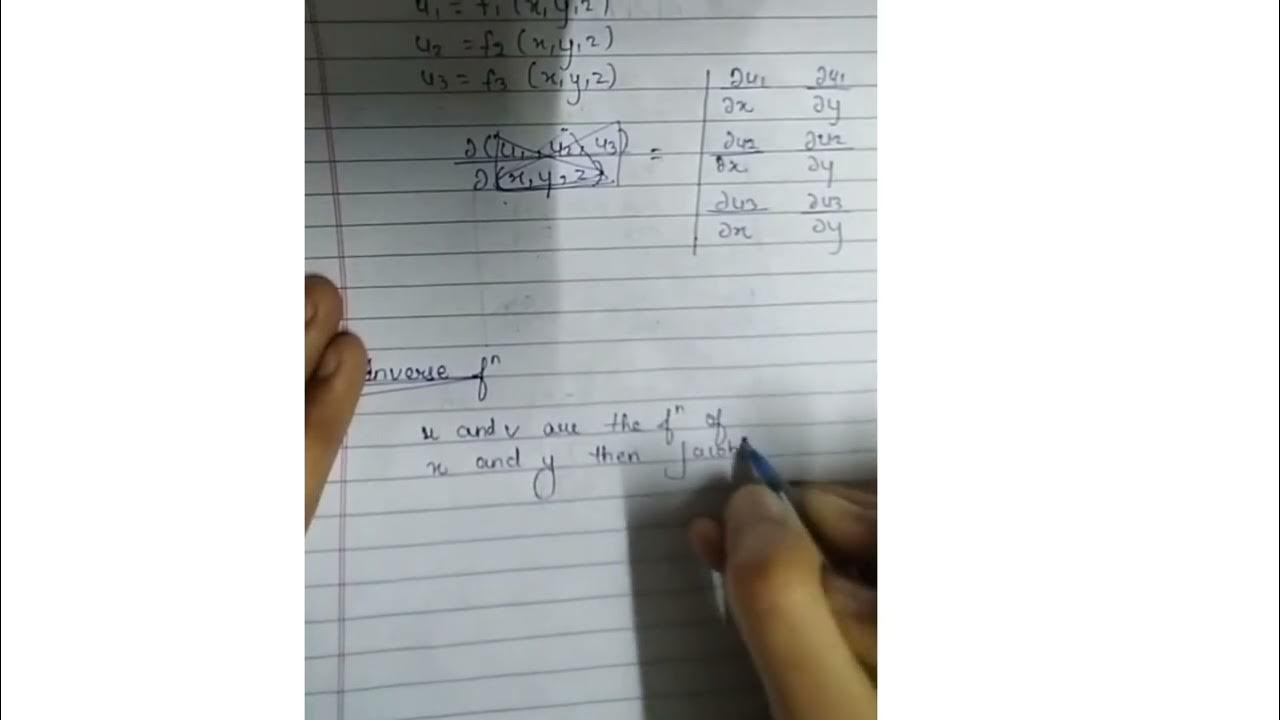 u₁ = f₁ (x, y, z)
u₂ = f₂ (x, y, z)
u₃ = f₃ (x, y, z)
∂(u₁, u₂, u₃) / ∂(x, y, z) = | ∂u₁/∂x ∂u₁/∂y
∂u₂/∂x ∂u₂/∂y
∂u₃/∂x ∂u₃/∂y
Inverse fⁿ
u and v are the fⁿ of
x and y then Jacob